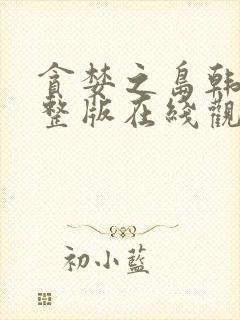 貪婪之島韩
整版在綫觀
初小藍